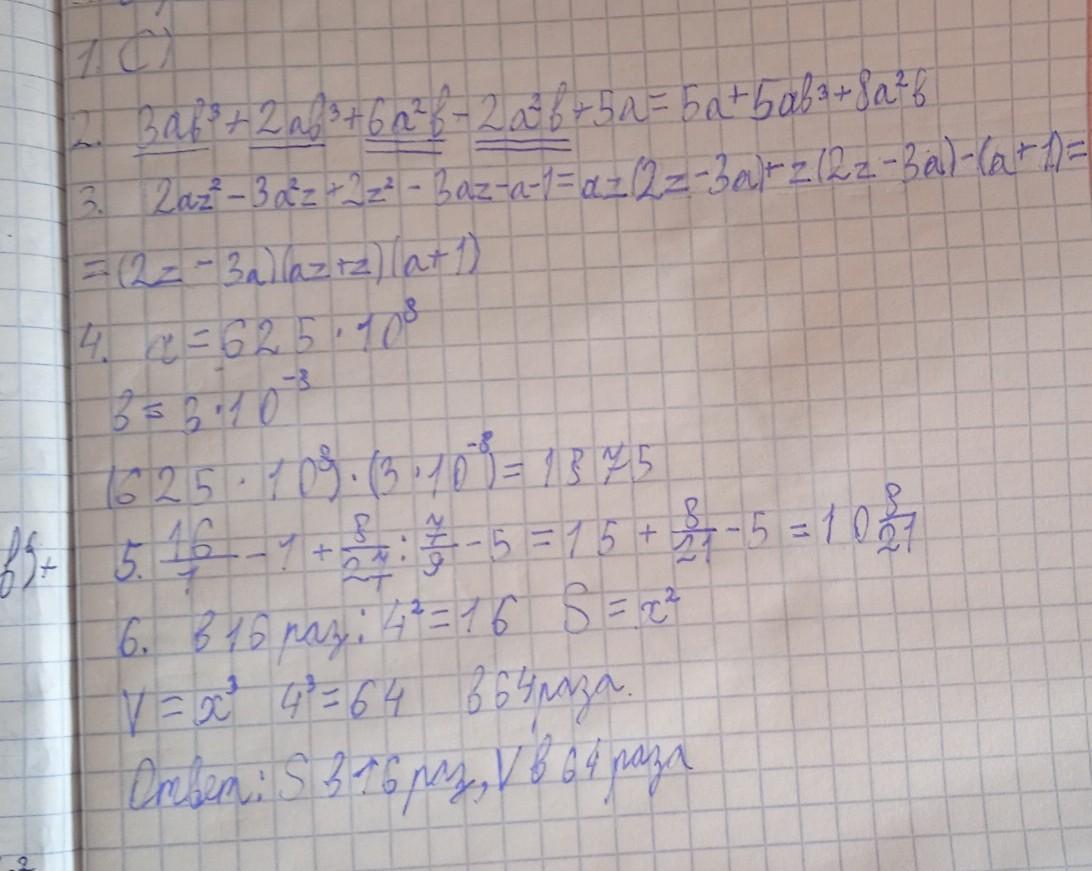 1. С)
2. 3ab³ + 2ab³ + 6a²b - 2a²b + 5a = 5a + 5ab³ + 8a²b
3. 2az² - 3a²z + 2z² - 3az - a - 1 = az(2z - 3a) + z(2z - 3a) - (a + 1) =
= (2z - 3a)(az + z)(a + 1)
4. a = 625 · 10⁸
в = 3 · 10⁻³
(625 · 10⁹) · (3 · 10⁻⁸) = 1875
5. 16/1 - 1 + 8/27 : 7/9 - 5 = 15 + 8/21 - 5 = 10 8/21
6. в 16 раз: 4² = 16 S = x²
V = x³ 4³ = 64 в 64 раза.
Ответ: S в 16 раз, V в 64 раза